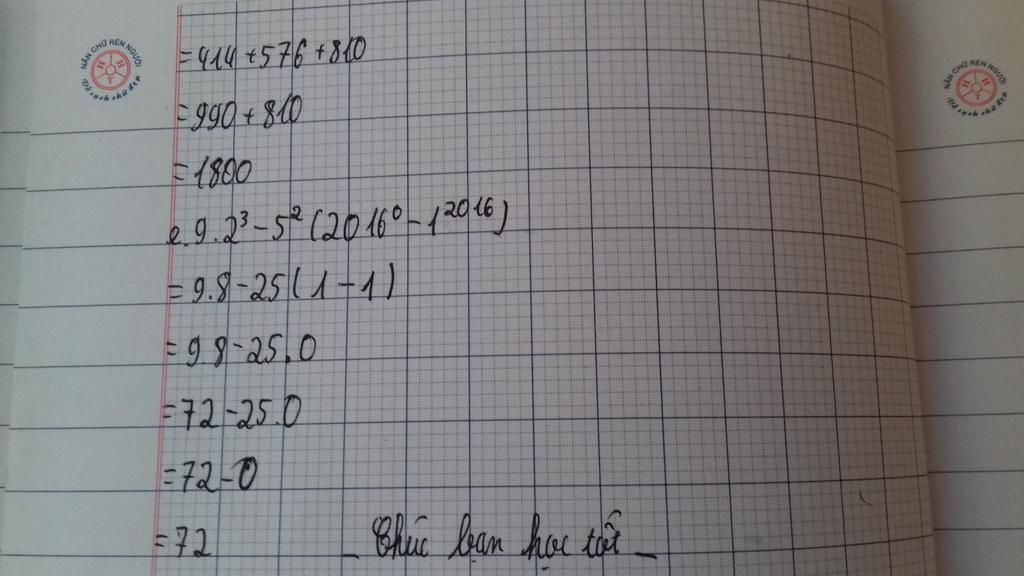 NẮN CHỮ RÈN NGƯỜI
=414+576+810
=990+810
=1800
e. 9.2³-5²(2016⁰-1²⁰¹⁶)
=9.8-25(1-1)
=9.8-25.0
=72-25.0
=72-0
=72 _ Chúc bạn học tốt _
NẮN CHỮ RÈN NGƯỜI